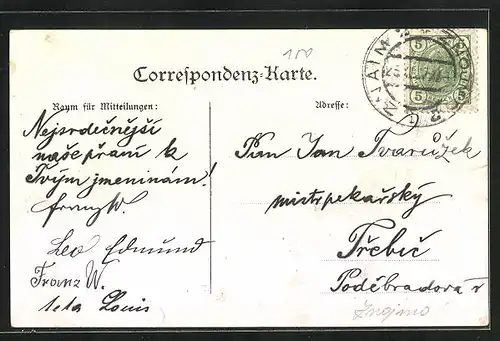 150
ZNAIM
5
5 5
Correspondenz-Karte.
Raum für Mitteilungen:
Adresse:
Nejsrdečnější
naše přání k
Tvým jmeninám!
Franz W.
Leo Edmund
Franz W.
teta Louis
Pan Jan Tvarůžek
mistr pekařský
Třebíč
Poděbradova
Znojmo